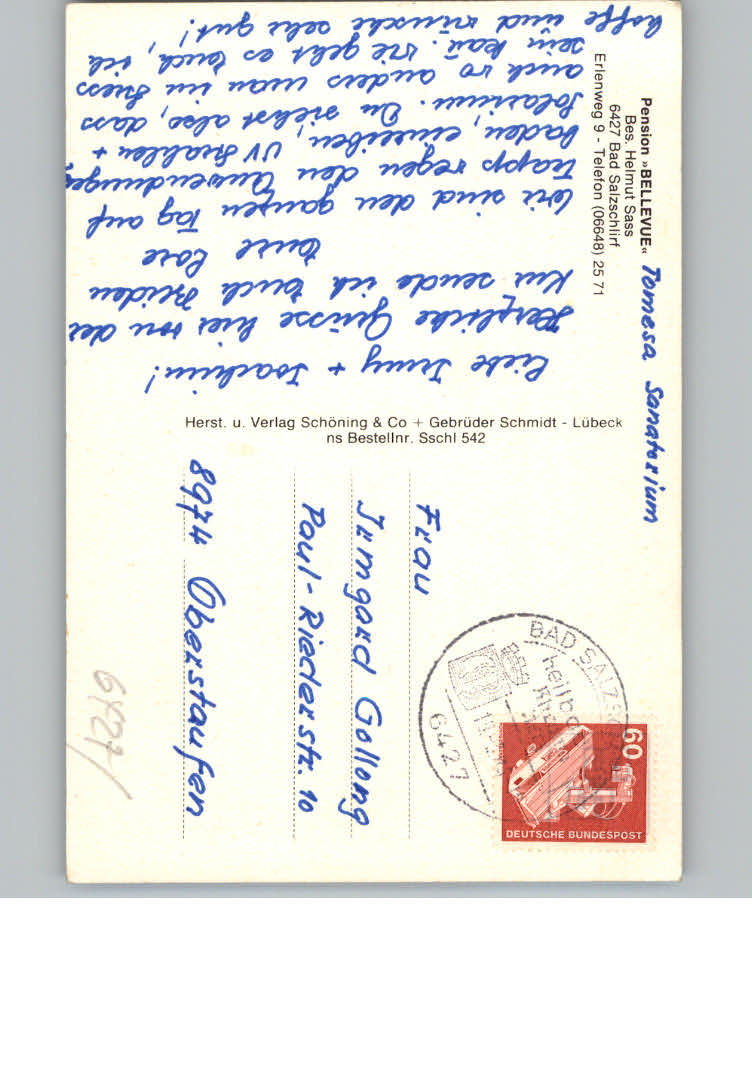 Pension »BELLEVUE«
Bes. Helmut Sass
6427 Bad Salzschlirf
Erlenweg 9 - Telefon (06648) 25 71
Tomesa Sanatorium
Liebe Irmg + Joachim!
Herzliche Grüsse hier von der
Kur sende ich Euch Beiden
Eure Lore
Wir sind den ganzen Tag auf
Trapp wegen den Anwendungen
baden, einreiben, UV Strahlen +
Solarium. Du siehst also, dass
auch wo anders man im Stress
sein kañ. Wie geht es Euch, ich
hoffe und wünsche sehr gut!
Herst. u. Verlag Schöning & Co + Gebrüder Schmidt - Lübeck
ns Bestellnr. Sschl 542
Frau
Irmgard Gollong
Paul-Riederstr. 10
8974 Oberstaufen
BAD SALZSC
6427
60
DEUTSCHE BUNDESPOST
6427/